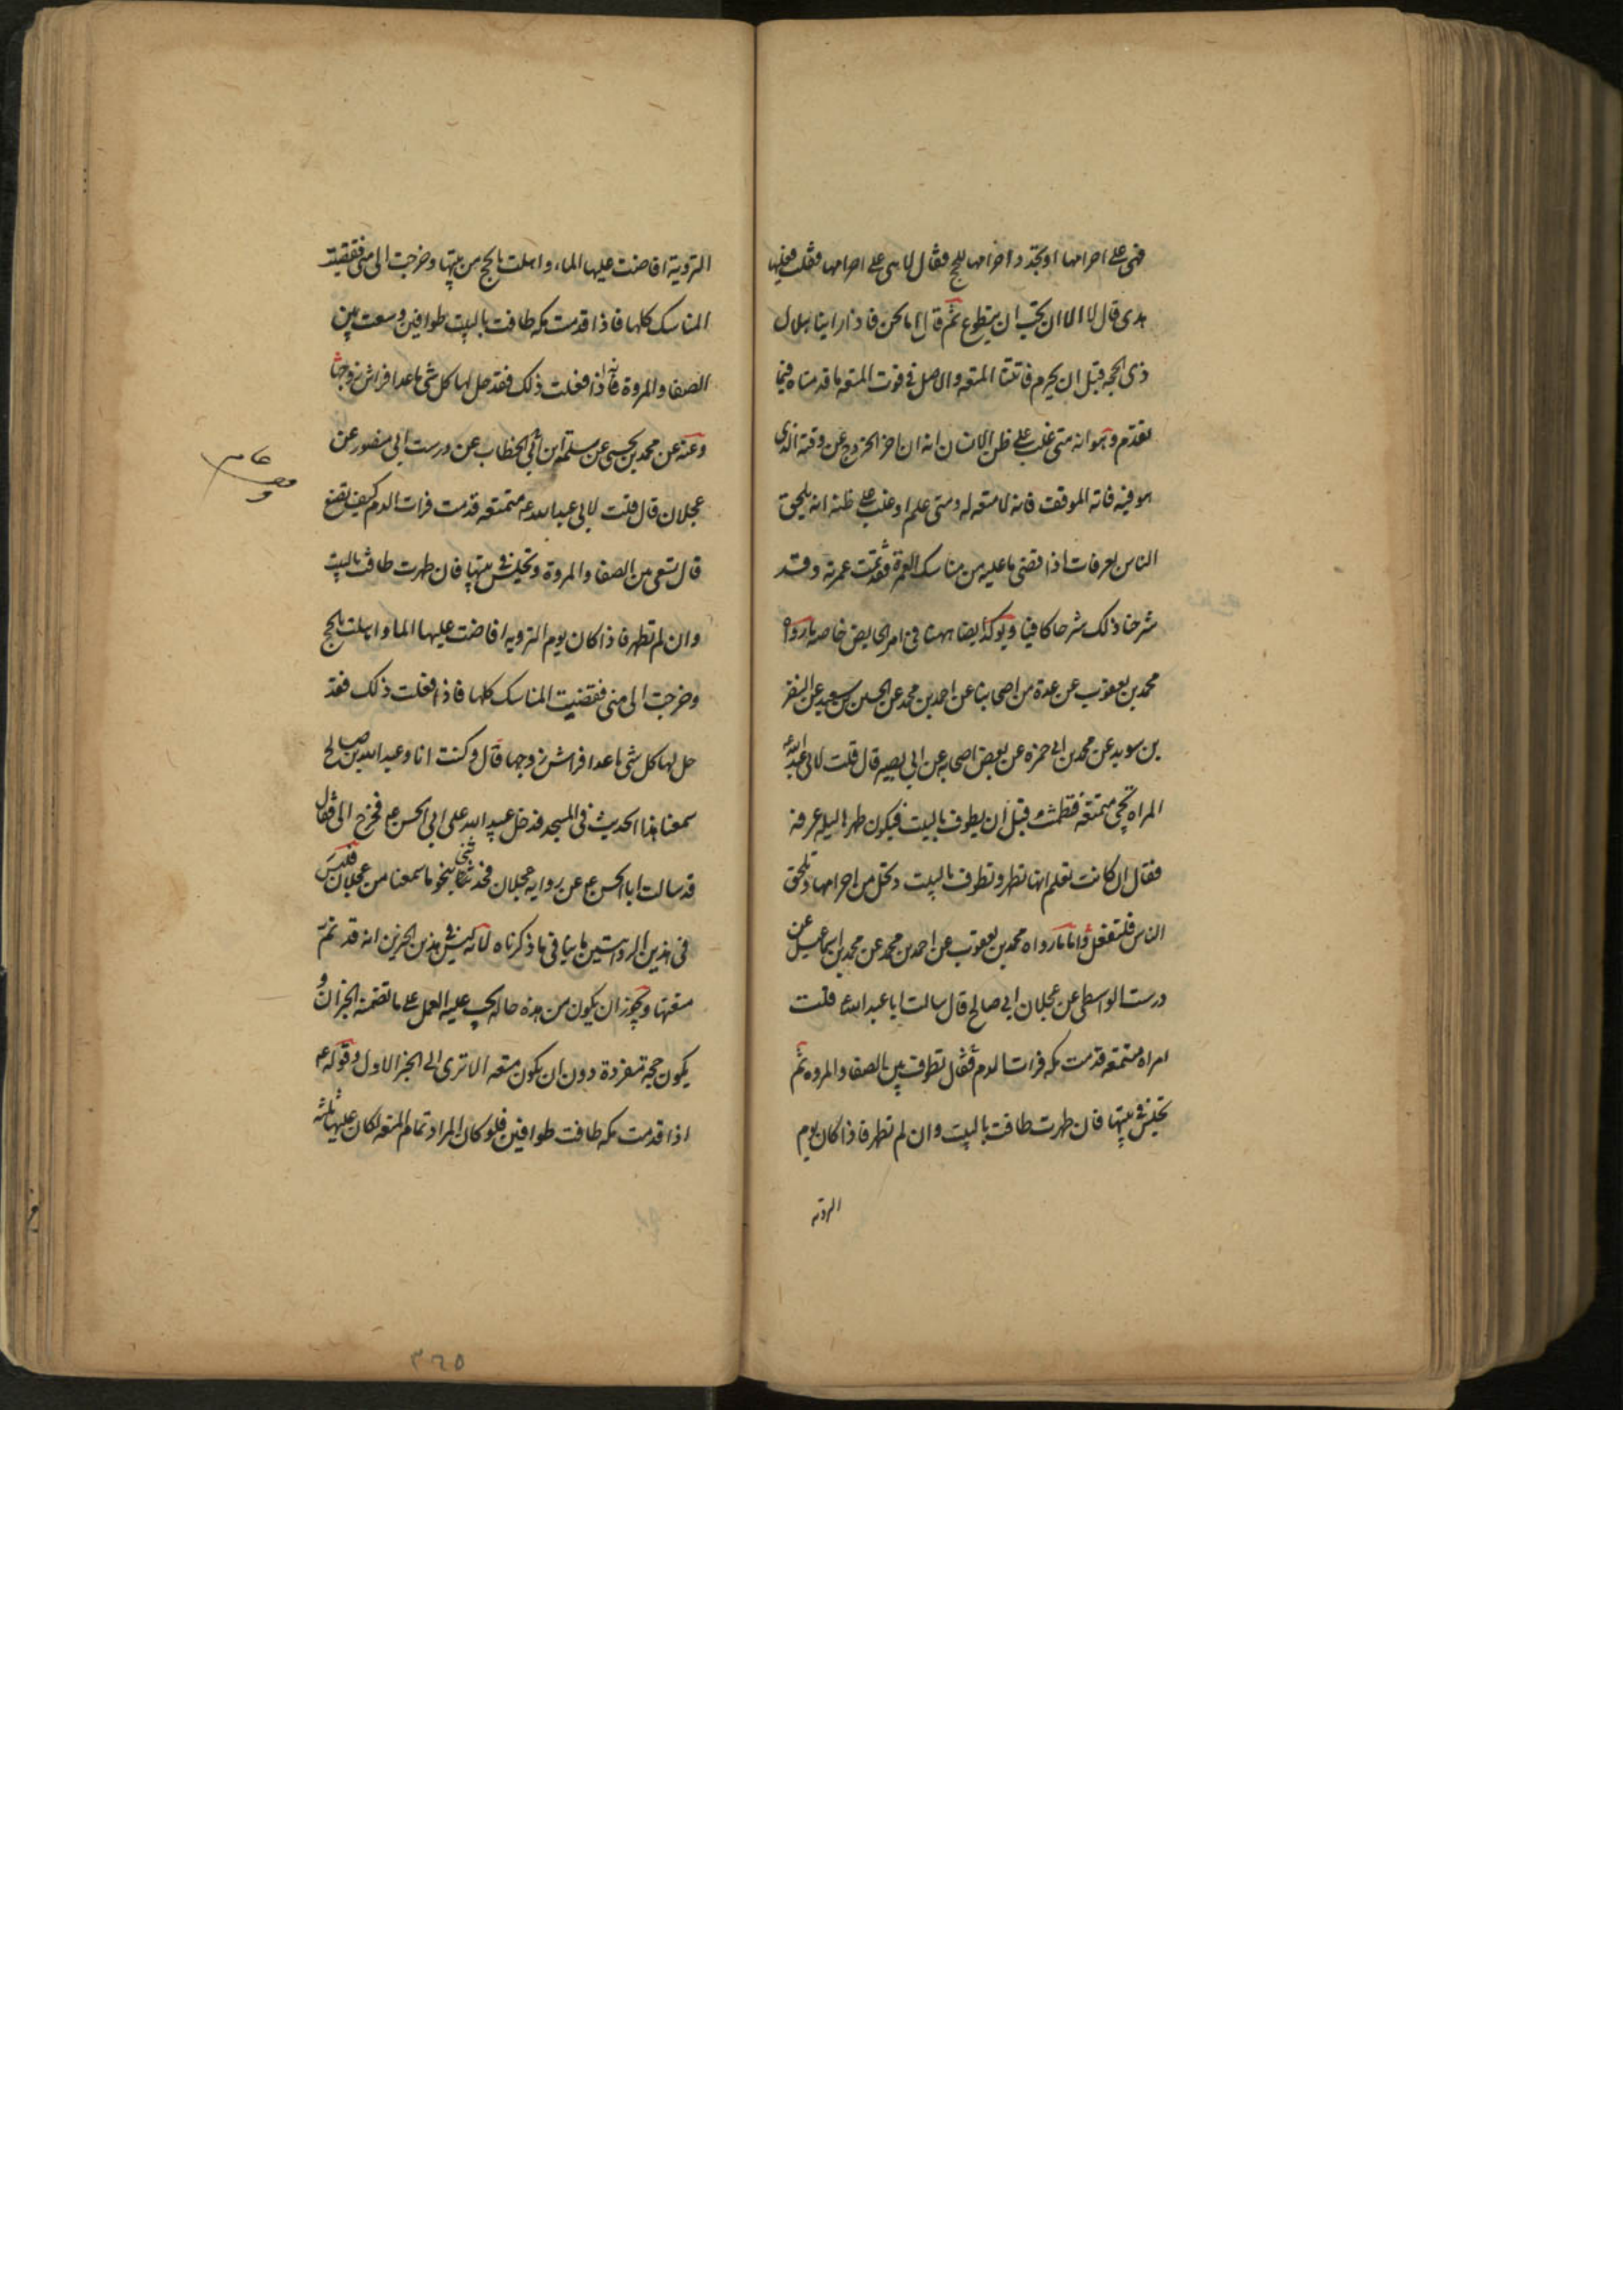 فهى على احرامها او تجدد احرامها للحج فقال لا هى على احرامها فقلت فعليها
هدى قال لا الا ان تحب ان يتطوع ثم قال اما نحن فاذا راينا هلال
ذى الحجه قبل ان يحرم فاتتنا المتعه والاصل فى فوت المتعه ما قدمناه فيما
تقدم وهو انه متى غلب على ظن الانسان انه ان اخر الخروج عن وقته الذى
هو فيه فاته الموقف فانه لا متعه له ومتى علم او غلب على ظنه انه يلحق
الناس بعرفات اذا قضى ما عليه من مناسك العمرة فقد تمت عمرته وقد
شرحنا ذلك شرحا كافيا ويوكد ايضا ههنا فى امر الحايض خاصه ما رواه
محمد بن يعقوب عن عدة من اصحابنا عن احمد بن محمد عن الحسين بن سعيد عن النضر
بن سويد عن محمد بن ابى حمزه عن بعض اصحابه عن ابى بصير قال قلت لابى عبد الله ع
المراه تجى متمتعه فتطمث قبل ان يطوف بالبيت فيكون طهرها ليله عرفه
فقال ان كانت تعلم انها تطهر وتطوف بالبيت وتحل من احرامها وتلحق
الناس فلتفعل واما ما رواه محمد بن يعقوب عن احمد بن محمد عن محمد بن اسماعيل عن
درست الواسطى عن عجلان ابى صالح قال سالت ابا عبد الله ع قلت
امراه متمتعه قدمت مكه فرات الدم فقال تطوف بين الصفا والمروه ثم
تجلس فى بيتها فان طهرت طافت بالبيت وان لم تطهر فاذا كان يوم
الترويه
التروية افاضت عليها الماء واهلت بالحج من بيتها وخرجت الى منى فقضيت
المناسك كلها فاذا قدمت مكه طافت بالبيت طوافين وسعت بين
الصفا والمروة فانه اذا فعلت ذلك فقد حل لها كل شى ما عدا فراش زوجها
وعنه عن محمد بن يحيى عن سلمة ابن ابى الخطاب عن درست ابى منصور عن
عجلان قال قلت لابى عبد الله ع متمتعه قدمت فرات الدم كيف تصنع
قال تسعى بين الصفا والمروة وتجلس فى بيتها فان طهرت طافت بالبيت
وان لم تطهر فاذا كان يوم الترويه افاضت عليها الما واهلت بالحج
وخرجت الى منى فقضيت المناسك كلها فاذا فعلت ذلك فقد
حل لها كل شى ما عدا فراش زوجها قال وكنت انا وعبيد الله بن صالح
سمعنا هذا الحديث فى المسجد فدخل عبيد الله على ابى الحسن ع فخرج الى فقال
قد سالت ابا الحسن ع عن روايه عجلان فحدثنى بنحو ما سمعنا من عجلان فليس
فى هذين الروايتين ما ينافى ما ذكرناه لانه ليس فى هذين الخبرين انه قد تم
متعتها ويجوز ان يكون من هذه حاله يجب عليه العمل على ما تضمنه الخبران و
يكون حجه مفردة دون ان يكون متعه الا ترى الى الخبر الاول وقوله ع
اذا قدمت مكه طافت طوافين فلو كان المراد تمام المتعه لكان عليها ثلثه
٣٦٥